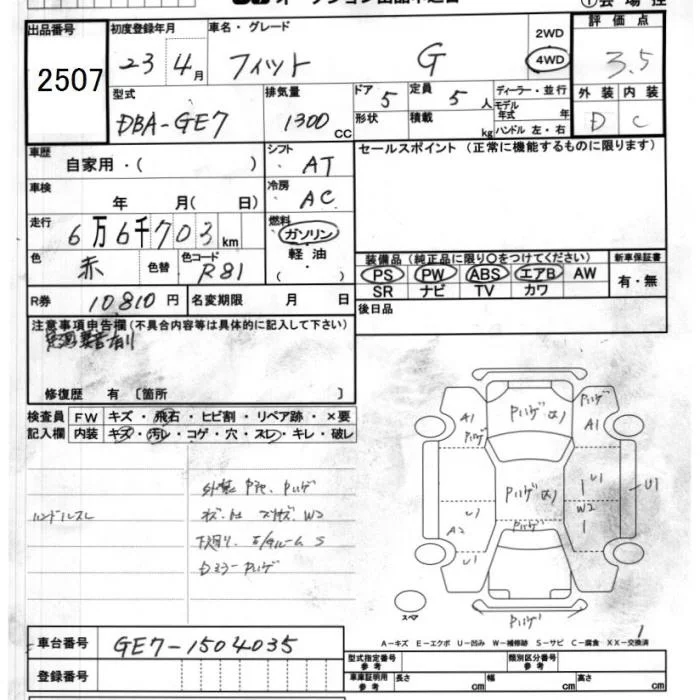 出品番号 初度登録年月 車名・グレード 2WD 評価点
2507 23年4月 フィット G 4WD 3.5
型式 排気量 ドア 5 定員 5人 ディーラー・並行 外装 内装
DBA-GE7 1300cc 形状 積載 kg モデル年式 年 D C
ハンドル 左・右
車歴 シフト セールスポイント (正常に機能するものに限ります)
自家用・( ) AT
車検 冷房
年 月( 日) AC
走行 燃料
6万6千703km ガソリン
色 色替 色コード 軽油 装備品 (純正品に限り○をつけてください) 新車保証書
赤 R81 ( ) PS PW ABS エアB AW 有・無
SR ナビ TV カワ
R券 10810円 名変期限 月 日 後日品
注意事項申告欄(不具合内容等は具体的に記入して下さい)
修復歴 有 〔箇所 〕
検査員 FW キズ・飛石・ヒビ割・リペア跡・×要
記入欄 内装 キズ・汚レ・コゲ・穴・スレ・キレ・破レ
ハンドルスレ
A1 Pハゲ Pハゲ A1 Pハゲ A1
Pハゲ A1 U1 U1
W2
A2 U1 Pハゲ
下廻り、 S
Dミラー Pハゲ
スペア Pハゲ
A-キズ E-エクボ U-凹み W-補修跡 S-サビ C-腐食 XX-交換済
車台番号 GE7-1504035
登録番号
型式指定番号 参考 類別区分番号 参考
車庫証明用 参考 長さ cm 幅 cm 高さ cm